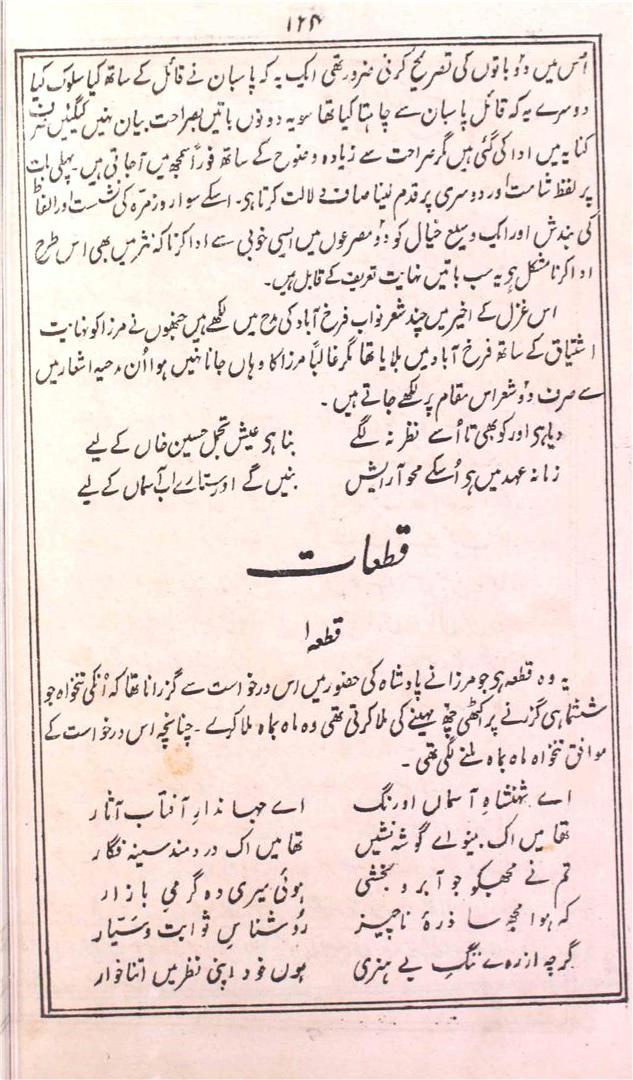 ۱۲۴
اُس میں دو باتوں کی تصریح کرنی ضرور تھی ایک یہ کہ پاسبان نے قائل کے ساتھ کیا سلوک کیا
دوسرے یہ کہ قائل پاسبان سے چاہتا کیا تھا سو یہ دونوں باتیں بصراحت بیان نہیں کیگئیں صرف
کنایہ میں ادا کی گئی ہیں مگر صراحت سے زیادہ وضوح کے ساتھ فوراً سمجھ میں آجاتی ہیں۔ پہلی بات
پر لفظ شامت اور دوسری پر قدم لینا صاف دلالت کرتا ہی۔ اسکے سوا روزمرّہ کی نشست اور الفاظ
کی بندش اور ایک وسیع خیال کو دو مصرعوں میں ایسی خوبی سے ادا کرنا کہ نثر میں بھی اس طرح
ادا کرنا مشکل ہی یہ سب باتیں نہایت تعریف کے قابل ہیں۔
اس غزل کے اخیر میں چند شعر نواب فرخ آباد کی مدح میں لکھے ہیں جنھوں نے مرزا کو نہایت
اشتیاق کے ساتھ فرخ آباد میں بلایا تھا مگر غالباً مرزا کا وہاں جانا نہیں ہوا اُن مدحیہ اشعار میں
سے صرف دو شعر اس مقام پر لکھے جاتے ہیں۔
دیا ہی اور کو بھی تا اُسے نظر نہ لگے بنا ہی عیش تجمل حسین خاں کے لیے
زمانہ عہد میں ہی اُسکے محو آرایش بنیں گے اور ستارے اب آسماں کے لیے
قطعات
قطعہ ۱
یہ وہ قطعہ ہی جو مرزا نے پادشاہ کی حضور میں اس درخواست سے گزرانا تھا کہ اُنکی تنخواہ جو
ششماہی گزرنے پر اکٹھی چھ مہینے کی ملا کرتی تھی وہ ماہ بماہ ملا کرے۔ چنانچہ اس درخواست کے
موافق تنخواہ ماہ بماہ ملنے لگی تھی۔
اے شہنشاہِ آسماں اورنگ اے جہاندارِ آفتاب آثار
تھا میں اک بینواے گوشہ نشیں تھا میں اک دردمند سینہ فگار
تم نے مجھکو جو آبرو بخشی ہوئی میری وہ گرمیِ بازار
کہ ہوا مجھ سا ذرۂ ناچیز روشناسِ ثوابت و سَیّار
گرچہ از رہے ننگِ بے ہنری ہوں خود اپنی نظر میں اتنا خوار